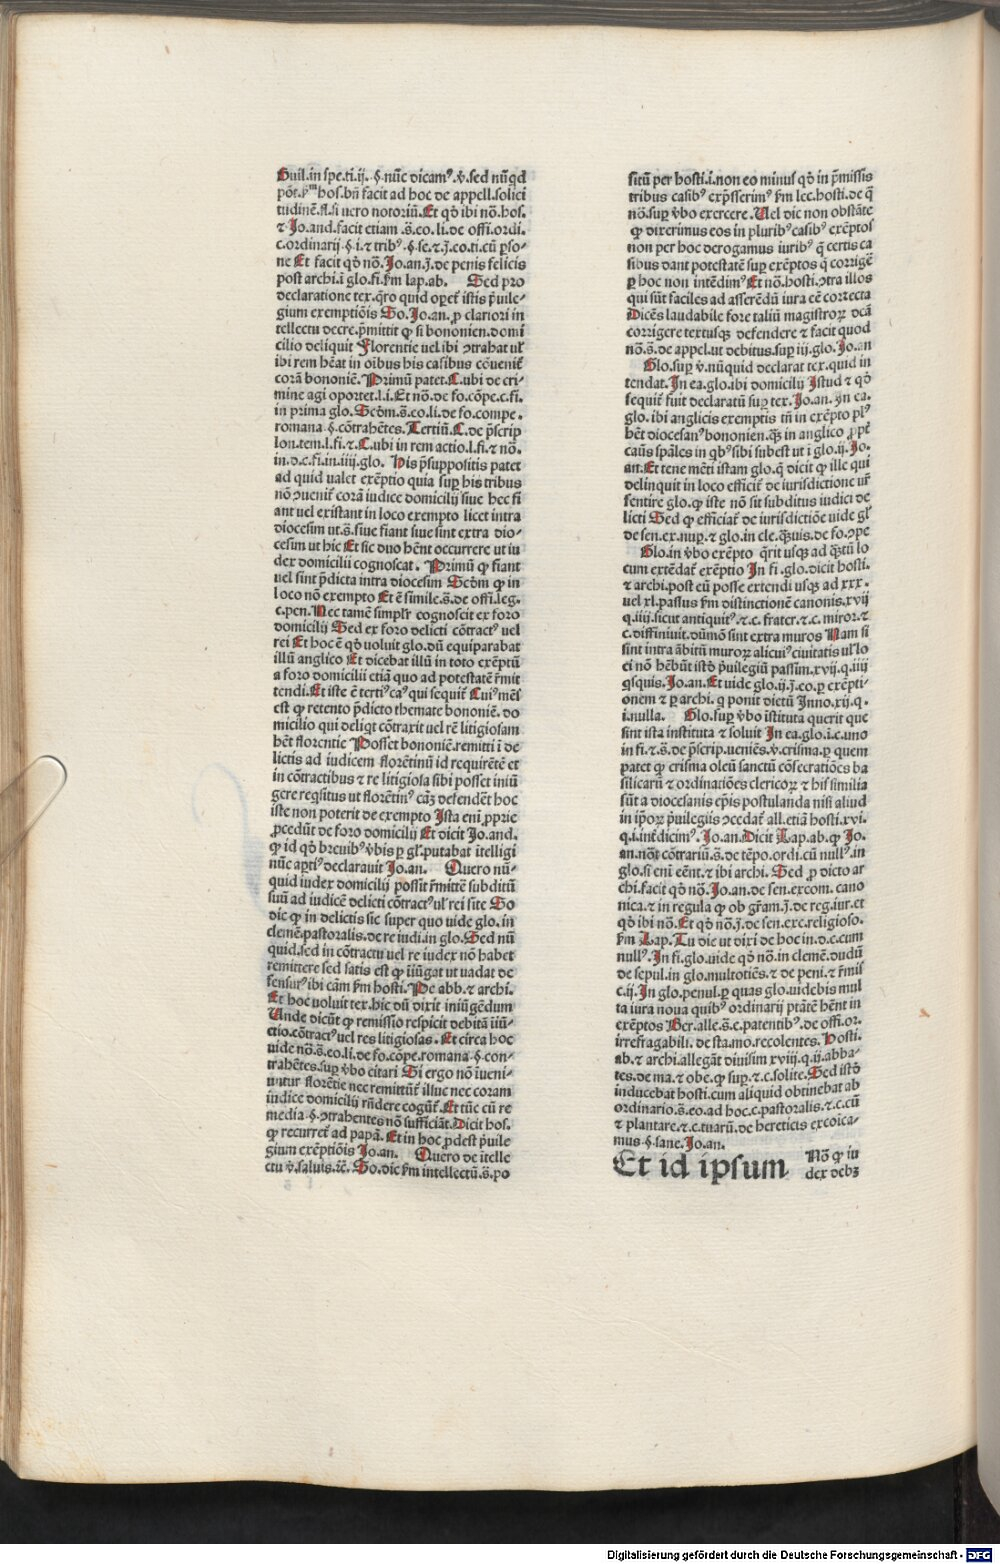 Guil.in spe.ti.ij.§.nūc dicamꝰ.ꝟ.sed nūqd
pōt.pͥmᵐ hos.bn̄ facit ad hoc de appell.solici
tudinē.fl.si uero notoriū.Et qd̓ ibi nō.hos.
⁊ Jo.and.facit etiam .s̄.eo.li.de offi.ordi.
c.ordinarij §.i.⁊ tribꝰ.§.se.⁊.j̄.eo.ti.cū ꝑso-
ne Et facit qd̓ nō.Jo.an.j̄.de penis felicis
post archi.ī glo.fi.ẜm lap.ab. Sed pro
declaratione tex.q̄ro quid oꝑet̉ istis p̓uile-
gium exemptiōis So.Jo.an.ꝓ clariori in
tellectu decre.p̓mittit ꝙ si bononien.domi
cilio deliquit Florentie uel ibi ꝯtrahat ul̓
ibi rem hēat in oibus his casibus cōuenit̉
corā bononiē.Primū patet.C.ubi de cri-
mine agi oportet.l.i.Et nō.de fo.cōpe.c.fi.
in prima glo.Scd̓m.s̄.eo.li.de fo.compe.
romana §.cōtrahētes.Tertiū.C.de p̓scrip
lon.tem.l.fi.⁊.C.ubi in rem actio.l.fi.⁊ nō.
in.d.c.fi.in.iiij.glo. His p̓suppositis patet
ad quid ualet exēptio quia suꝑ his tribus
nō ꝯuenit̉ corā iudice domicilij siue hec fi
ant uel existant in loco exempto licet intra
diocesim ut.s̄.siue fiant siue sint extra dio-
cesim ut hic Et sic duo hēnt occurrere ut iu
dex domicilii cognoscat. Primū ꝙ fiant
uel sint p̓dicta intra diocesim Scd̓m ꝙ in
loco nō exempto Et ē simile.s̄.de offi.leg.
c.pen.Nec tamē simplr̉ cognoscit ex foro
domicilij Sed ex foro delicti cōtractꝰ uel
rei Et hoc ē qd̓ uoluit glo.dū equiparabat
illū anglico Et dicebat illū in toto exēptū
a foro domicilii etiā quo ad potestatē r̉mit
tendi.Et iste ē tertiꝰ caꝰ qui sequit̉ Cuiꝰ mēs
est ꝙ retento p̓dicto themate bononiē.do
micilio qui deliqt cōtraxit uel rē litigiosam
hēt florentie Posset bononiē.remitti ī de
lictis ad iudicem florētinū id requirētē et
in cōtractibus ⁊ re litigiosa sibi posset iniū
gere reqͥsitus ut florētinꝰ cāꝫ defendēt hoc
iste non poterit de exempto Ista enī ꝓprie
ꝓcedūt de foro domicilij Et dicit Jo.and.
ꝙ id qd̓ breuibꝰ ꝟbis ꝑ gl̓.putabat ītelligi
nūc aꝑtiꝰ declarauit Jo.an. Quero nū-
quid iudex domicilij possit r̉mittē subditū
suū ad iudicē delicti cōtractꝰ ul̓ rei site So
dic ꝙ in delictis sic super quo uide glo.in
clemē.pastoralis.de re iudi.in glo.Sed nū
quid.sed in cōtractu uel re iudex nō habet
remittere sed satis est ꝙ iīūgat ut uadat de
fensurꝰ ibi cām ẜm hosti.Pe abb.⁊ archi.
Et hoc uoluit tex.hic dū dixit iniūgēdum
Unde dicūt ꝙ remissio respicit debitā iīū-
ctio.cōtractꝰ uel res litigiosas.Et circa hoc
uide nō.s̄.eo.li.de fo.cōpe.romana §.con-
trahētes.suꝑ ꝟbo citari Si ergo nō īueni-
untur florētie nec remittūt̉ illuc nec coram
iudice domicilij rn̄dere cogūt̉.Et tūc cū re
media §.ꝯtrahentes nō sufficiāt.Dicit hos.
ꝙ recurret̉ ad papā.Et in hoc ꝓdest p̓uile
gium exēptiōis Jo.an. Quero de itelle
ctu ꝟ.saluis.⁊c̄.So.dic ẜm intellectū.s̄.po
sitū per hosti.i.non eo minus qd̓ in p̓missis
tribus casibꝰ exp̓sserimꝰ ẜm lec.hosti.de q̄
nō.suꝑ ꝟbo exercere.Uel dic non obstāte
ꝙ dixerimus eos in pluribꝰ casibꝰ exēptos
non per hoc derogamus iuribꝰ q̄ certis ca
sibus dant potestatē suꝑ exēptos q̄ corrigē
ꝑ hoc non intēdimꝰ Et nō.hosti.ꝯtra illos
qui sūt faciles ad asserēdū iura eē correcta
Dicēs laudabile fore taliū magistroꝝ dcā
corrigere textusqꝫ defendere ⁊ facit quod
nō.s̄.de appel.ut debitus.suꝑ iij.glo.Jo.an
Glo.suꝑ ꝟ.nūquid declarat tex.quid in
tendat.In ea.glo.ibi domicilij Istud ⁊ qd̓
sequit̉ fuit declaratū suꝑ tex.Jo.an.In ea.
glo.ibi anglicis exemptis tn̄ in exēpto plꝰ
hēt diocesanꝰ bononien.qꝫ in anglico ꝓpt̉
caūs spāles in qͥbꝰ sibi subest ut i glo.ij.Jo.
an.Et tene mēti istam glo.q̄ dicit ꝙ ille qui
delinquit in loco efficit̉ de iurisdictione ur̉
sentire glo.ꝙ iste nō sit subditus iudici de
licti Sed ꝙ efficiat̉ de iurisdictiōe uide gl̓
de sen.ex.nuꝑ.⁊ glo.in cle.q̄uis.de fo.ꝯpe
Glo.in ꝟbo exēpto q̄rit usqꝫ ad q̄tū lo
cum extēdat̉ exēptio In fi.glo.dicit hosti.
⁊ archi.post eū posse extendi usqꝫ ad xxx.
uel xl.passus ẜm distinctionē canonis.xvij
q.iiij.sicut antiquitꝰ.⁊.c.frater.⁊.c.miror.⁊
c.diffiniuit.dūmō sint extra muros Nam si
sint intra ābitū muroꝝ alicuiꝰ ciuitatis ul̓ lo
ci nō hēbūt istd̓ p̓uilegiū passim.xvij.q.iiij
qͥsquis.Jo.an.Et uide glo.ij.j̄.eo.ꝑ exēpti-
onem ⁊ ꝑ archi.q ponit dictū Inno.xij.q.
i.nulla. Glo.suꝑ ꝟbo īstituta querit que
sint ista instituta ⁊ soluit In ea.glo.ī.c.uno
in fi.⁊.s̄.de p̓scrip.ueniēs.ꝟ.crisma.ꝑ quem
patet ꝙ crisma oleū sanctū cōsecratiōes ba
silicarū ⁊ ordinatiōes clericoꝝ ⁊ his similia
sūt a diocesanis ep̄is postulanda nisi aliud
in ip̄oꝝ p̓uilegiis ꝯcedat̉ all.etiā hosti.xvi.
q.i.inēdicimꝰ.Jo.an.Dicit Lap.ab.ꝙ Jo.
an.nōt cōtrariū.s̄.de tēpo.ordi.cū nullꝰ.in
glo.si enī eēnt.⁊ ibi archi. Sed ꝓ dicto ar
chi.facit qd̓ nō.Jo.an.de sen.excom.cano
nica.⁊ in regula ꝙ ob gr̄am.j̄.de reg.iur.et
qd̓ ibi nō.Et qd̓ nō.j̄.de sen.exc.religioso.
ẜm Lap.Tu dic ut dixi de hoc in.d.c.cum
nullꝰ.In fi.glo.uide qd̓ nō.in clemē.dudū
de sepul.in glo.multotiēs.⁊ de peni.⁊ r̉mis̄
c.ij.In glo.penul.ꝑ quas glo.uidebis mul
ta iura noua quibꝰ ordinarij ptātē hēnt in
exēptos Ber.alle.s̄.e.patentibꝰ.de offi.or.
irrefragabili.de sta.mo.recolentes.Hosti.
ab.⁊ archi.allegāt diuisim xviij.q.ij.abba-
tes.de ma.⁊ obe.ꝙ suꝑ.⁊.c.solite.Sed istd̓
inducebat hosti.cum aliquid obtinebat ab
ordinario.s̄.eo.ad hoc.c.pastoralis.⁊.c.cū
⁊ plantare.⁊.c.tuarū.de hereticis excōica-
mus §.sane.Jo.an.
Et id ipsum Nō ꝙ iu
dex debꝫ
Digitalisierung gefördert durch die Deutsche Forschungsgemeinschaft - DFG